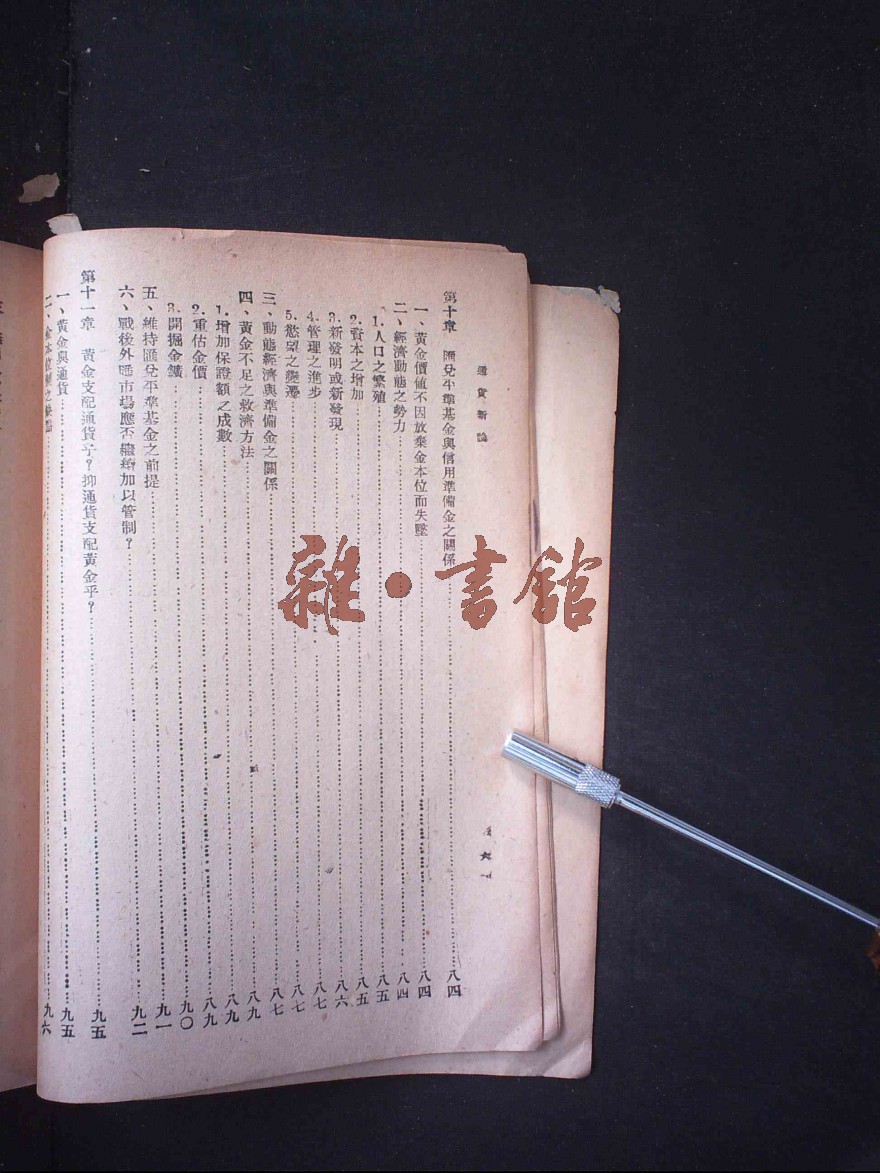 通貨新論
第十章　匯兌平準基金與信用準備金之關係……八四
一、黃金價值不因放棄金本位而失墜……八四
二、經濟動態之勢力……八四
1.人口之繁殖……八五
2.資本之增加……八五
3.新發明或新發現……八六
4.管理之進步……八七
5.慾望之變遷……八七
三、動態經濟與準備金之關係……八七
四、黃金不足之救濟方法……八九
1.增加保證額之成數……八九
2.重估金價……八九
3.開掘金鑛……九〇
五、維持匯兌平準基金之前提……九一
六、戰後外匯市場應否繼續加以管制？……九二
第十一章　黃金支配通貨乎？抑通貨支配黃金乎？……九五
一、黃金與通貨……九五
二、金本位制之缺點……九六
雜·書館